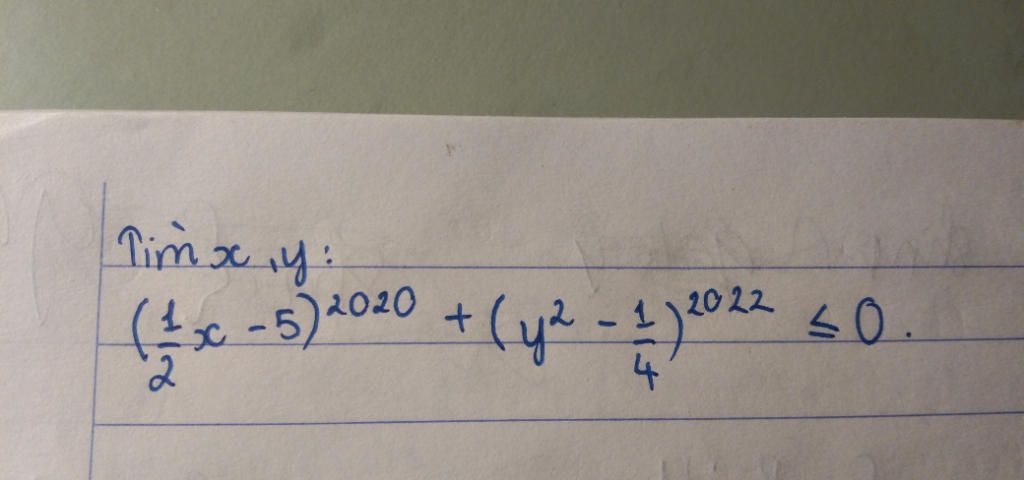 Tìm x, y:
(1/2 x - 5)^2020 + (y^2 - 1/4)^2022 ≤ 0.